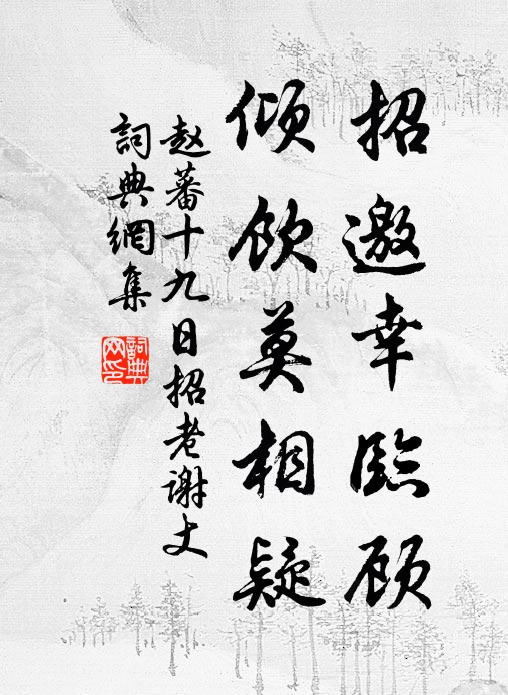 招邀幸臨顾
倾饮莫相疑
赵蕃十九日招老谢丈
詞典網集
詞典网印